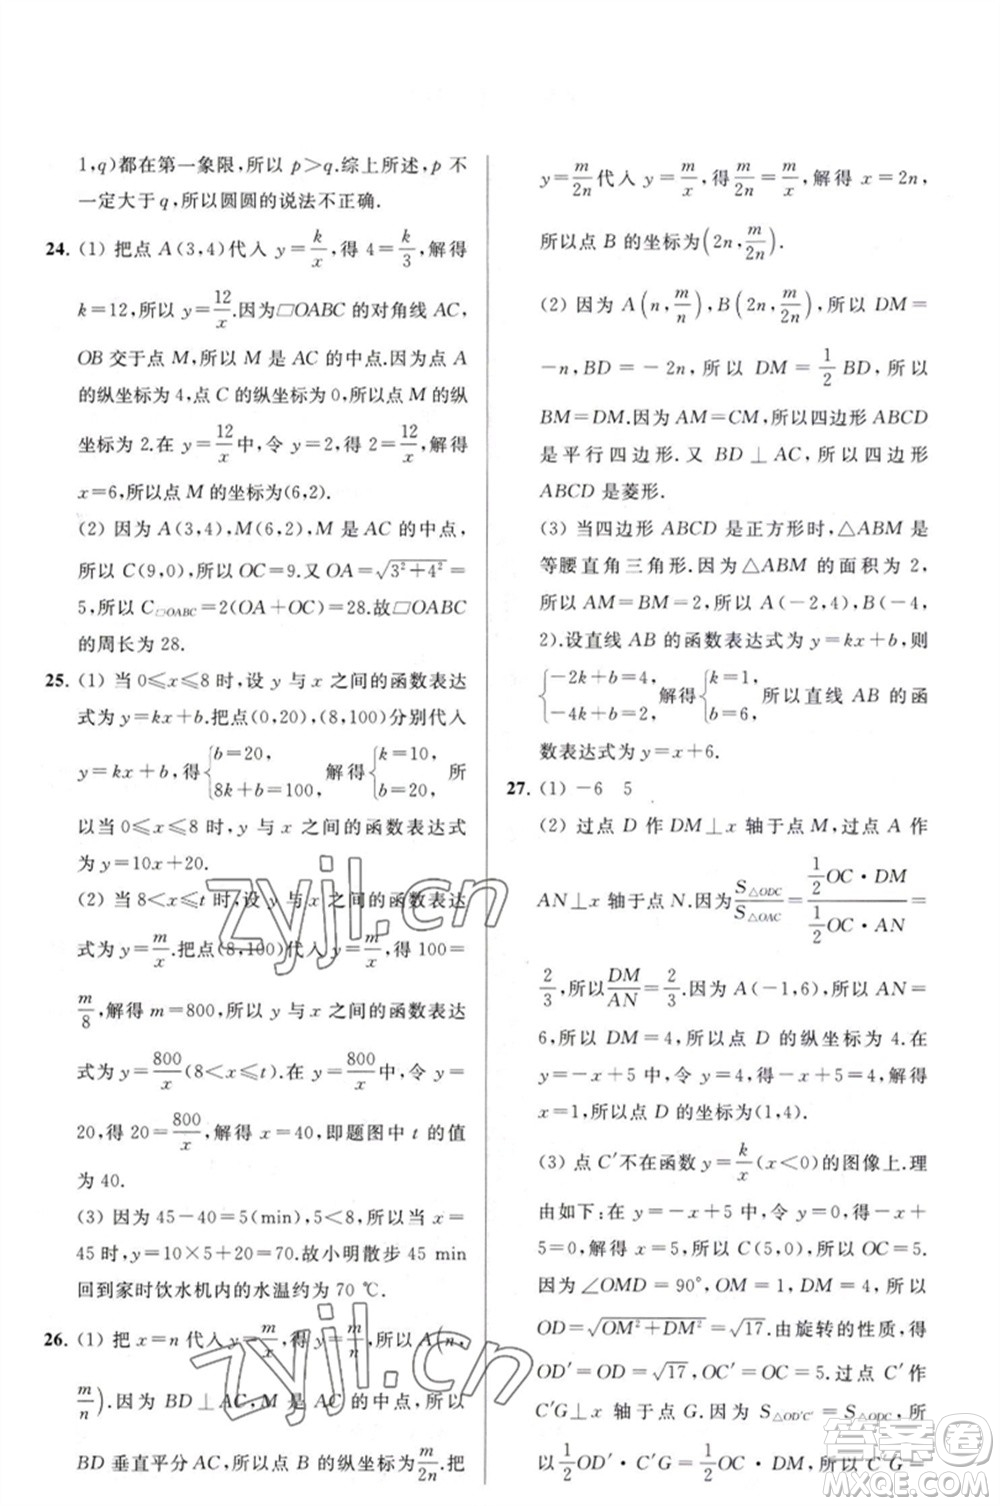 1,q)都在第一象限,所以 p>q.综上所述,p 不
一定大于 q,所以圆圆的说法不正确.
24. (1) 把点 A(3,4)代入 y=k/x,得 4=k/3,解得
k=12,所以 y=12/x.因为□OABC 的对角线 AC,
OB 交于点 M,所以 M 是 AC 的中点.因为点 A
的纵坐标为 4,点 C 的纵坐标为 0,所以点 M 的纵
坐标为 2.在 y=12/x中,令 y=2,得 2=12/x,解得
x=6,所以点 M 的坐标为(6,2).
(2) 因为 A(3,4),M(6,2),M 是 AC 的中点,
所以 C(9,0),所以 OC=9.又 OA=√(3²+4²)=
5,所以 C□OABC=2(OA+OC)=28.故□OABC
的周长为 28.
25. (1) 当 0≤x≤8 时,设 y 与 x 之间的函数表达
式为 y=kx+b.把点(0,20),(8,100)分别代入
y=kx+b,得{b=20, 8k+b=100,解得{k=10, b=20, 所
以当 0≤x≤8 时,y 与 x 之间的函数表达式
为 y=10x+20.
(2) 当 8<x≤t 时,设 y 与 x 之间的函数表达
式为 y=m/x.把点(8,100)代入 y=m/x,得 100=
m/8,解得 m=800,所以 y 与 x 之间的函数表达
式为 y=800/x(8<x≤t).在 y=800/x中,令 y=
20,得 20=800/x,解得 x=40,即题图中 t 的值
为 40.
(3) 因为 45-40=5(min),5<8,所以当 x=
45 时,y=10×5+20=70.故小明散步 45 min
回到家时饮水机内的水温约为 70 ℃.
26. (1) 把 x=n 代入 y=m/x,得 y=m/n,所以 A(n,
m/n).因为 BD⊥AC,M 是 AC 的中点,所以
BD 垂直平分 AC,所以点 B 的纵坐标为m/2n.把
y=m/2n代入 y=m/x,得m/2n=m/x,解得 x=2n,
所以点 B 的坐标为(2n,m/2n).
(2) 因为 A(n,m/n),B(2n,m/2n),所以 DM=
-n,BD=-2n,所以 DM=1/2 BD,所以
BM=DM.因为 AM=CM,所以四边形 ABCD
是平行四边形.又 BD⊥AC,所以四边形
ABCD 是菱形.
(3) 当四边形 ABCD 是正方形时,△ABM 是
等腰直角三角形.因为△ABM 的面积为 2,
所以 AM=BM=2,所以 A(-2,4),B(-4,
2).设直线 AB 的函数表达式为 y=kx+b,则
{-2k+b=4, -4k+b=2,解得{k=1, b=6,所以直线 AB 的函
数表达式为 y=x+6.
27. (1) -6 5
(2) 过点 D 作 DM⊥x 轴于点 M,过点 A 作
AN⊥x 轴于点 N.因为S△ODC/S△OAC=(1/2 OC·DM)/(1/2 OC·AN)=
2/3,所以DM/AN=2/3.因为 A(-1,6),所以 AN=
6,所以 DM=4,所以点 D 的纵坐标为 4.在
y=-x+5 中,令 y=4,得-x+5=4,解得
x=1,所以点 D 的坐标为(1,4).
(3) 点 C′不在函数 y=k/x(x<0)的图像上.理
由如下:在 y=-x+5 中,令 y=0,得-x+
5=0,解得 x=5,所以 C(5,0),所以 OC=5.
因为∠OMD=90°,OM=1,DM=4,所以
OD=√(OM²+DM²)=√17.由旋转的性质,得
OD′=OD=√17,OC′=OC=5.过点 C′作
C′G⊥x 轴于点 G.因为 S△OD′C′=S△ODC,所
以1/2 OD′·C′G=1/2 OC·DM,所以 C′G=
zyjl.cn
zyjl.cn
答案圈
MXQE.COM